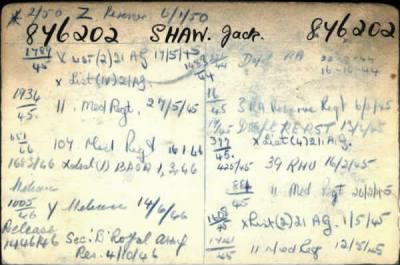 * 2/50 Z Reserve 6/1/50
846202 SHAW. Jack. 846202
1787/45 X List (2) 21 AG 17/5/45
x List (IV) 21 Ag.
1934/45. 11. Med Regt. 27/5/45
651/66 107 Med Regt 16 1 66
1683/66 x List (1) BAOR 1,3,46
Release
1005/46 Y Release 14/6/46
Release
14/46/46 Sec. B Royal Army
Res. 4/10/46
1483/44 Dep RA
16-10-44
16/45 3 RA Reserve Regt 6/1/45
399/45. x List (4) 21 AG.
425/45 39 RHU 16/2/45
884/45 11 Med Regt 26/2/45
x List (2) 21 AG. 1/5/45
11 Med Reg 12/5/45